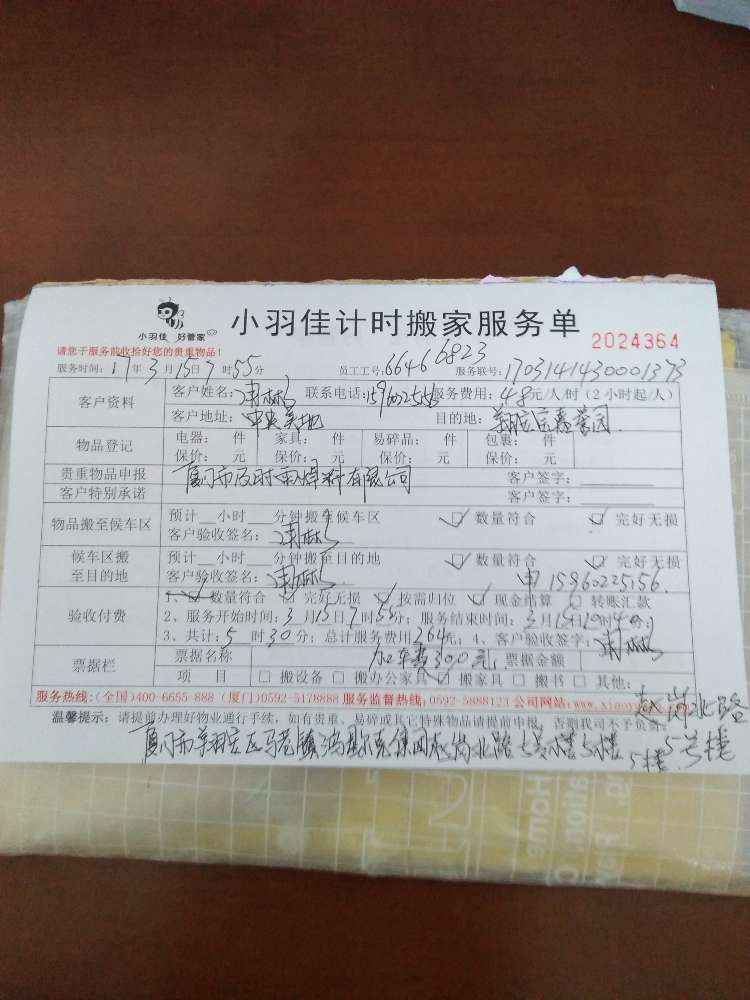 小羽佳 好管家
小羽佳计时搬家服务单 2024364
请您于服务前收拾好您的贵重物品!
服务时间: 17年3月15日7时55分 员工工号: 6646 6823 服务联号: 1703141430001373
客户资料 客户姓名: 联系电话: 服务费用: 48元/人/时 (2小时起/人)
客户地址: 中央美地 目的地:
物品登记 电器: 件 家具: 件 易碎品: 件 包裹: 件
保价: 元 保价: 元 保价: 元 保价: 元
贵重物品申报 厦门市及时雨焊料有限公司 客户签字:
客户特别承诺 客户签字:
物品搬至候车区 预计__小时__分钟搬至候车区 数量符合 完好无损
客户验收签名:
候车区搬至目的地 预计__小时__分钟搬至目的地 数量符合 完好无损
客户验收签名: 15960225156
验收付费 1、 数量符合 完好无损 按需归位 现金结算 转账汇款
2、服务开始时间: 3月15日7时55分; 服务结束时间: 3月15日
3、共计: 5时30分; 总计服务费用264元; 4、客户验收签字:
票据栏 票据名称 加车费300元 票据金额
项 目 搬设备 搬办公家具 搬家具 搬书 其他:
服务热线:(全国)400-6655-888 (厦门)0592-5178888 服务监督热线:0592-5888123 公司网站:www.xiaoy
温馨提示: 请提前办理好物业通行手续, 如有贵重、易碎或其它特殊物品请提前申报, 否则我司不予负责。
赵岗北路
5号楼
厦门市翔安区马巷镇鸿星尔克集团赵岗北路 5楼